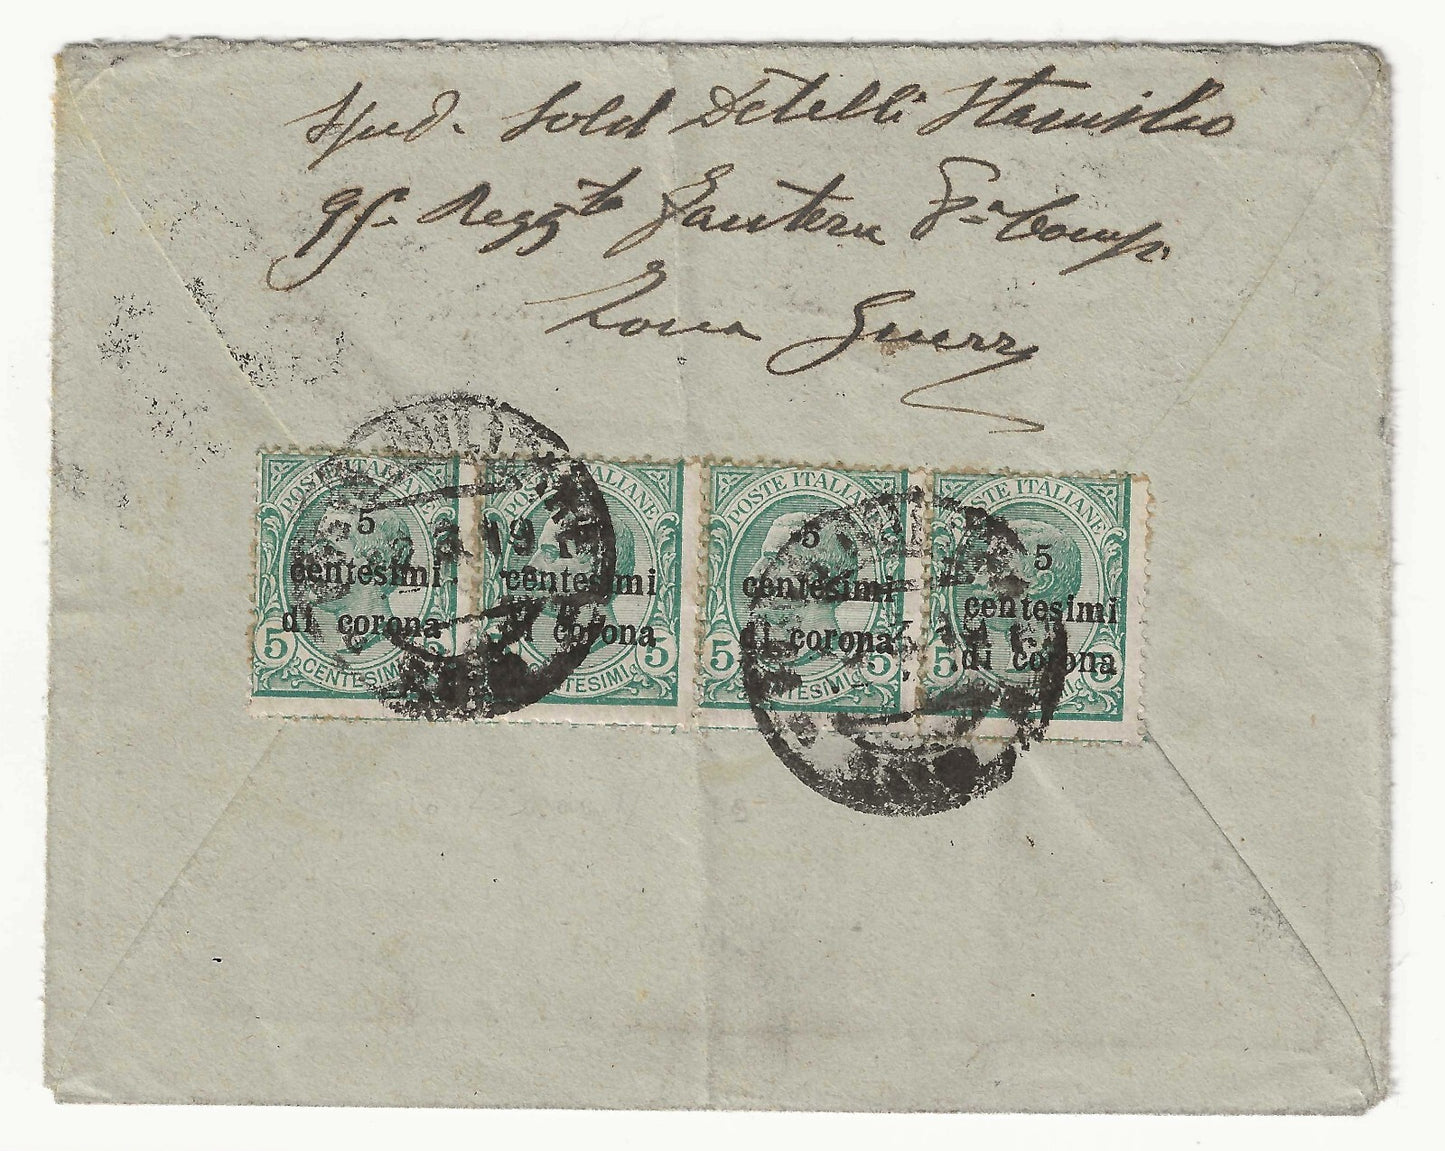 Sped. Sold Detelli Stanislao
Regg.to Fanteria 8ª Comp.
Zona Guerra
POSTE ITALIANE
5
centesimi
di corona
5 CENTESIMI
POSTE ITALIANE
5
centesimi
di corona
5 CENTESIMI 5
POSTE ITALIANE
5
centesimi
di corona
5 CENTESIMI 5
POSTE ITALIANE
5
centesimi
di corona
5 CENTESIMI
19